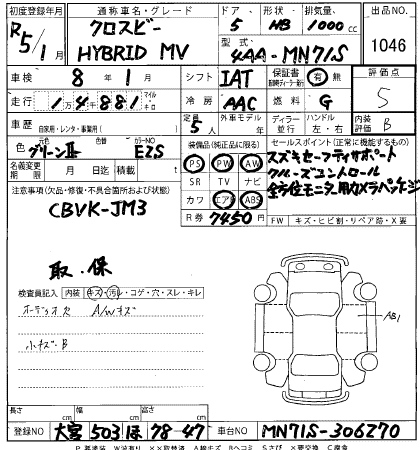 初度登録年月 通称車名・グレード ドア 形状 排気量 出品No.
R5/1月 クロスビー HYBRID MV 5 HB 1000cc 1046
型式 4AA-MN71S
車検 8年1月 シフト IAT 保証書 有 無 評価点 5
走行 1万4881 マイル キロ 冷房 AAC 燃料 G
車歴 自家用・レンタ・事業用( ) 定員 5人 外車モデル 年 ディーラー 並行 ハンドル 左・右 内装評価 B
色 グリーンII 色替 カラーNo EZS
装備品(純正品に限る) セールスポイント(正常に機能するもの)
PS PW AW スズキセーフティサポート
名義変更期限 月 日迄 積載 t SR TV ナビ クルーズコントロール
注意事項(欠品・修復・不具合箇所および状態) カワ エアB ABS 全方位モニター用カメラパッケージ
CBVK-JM3 R券 7450円 FW キズ・ヒビ割・リペア跡・X要
取・保
検査員記入 内装 キズ・汚レ・コゲ・穴・スレ・キレ
オーディオ穴 A/Wキズ
小キズB
長さ cm 幅 cm 高さ cm
登録No 大宮 503 ほ 78-47 車台No MN71S-306270